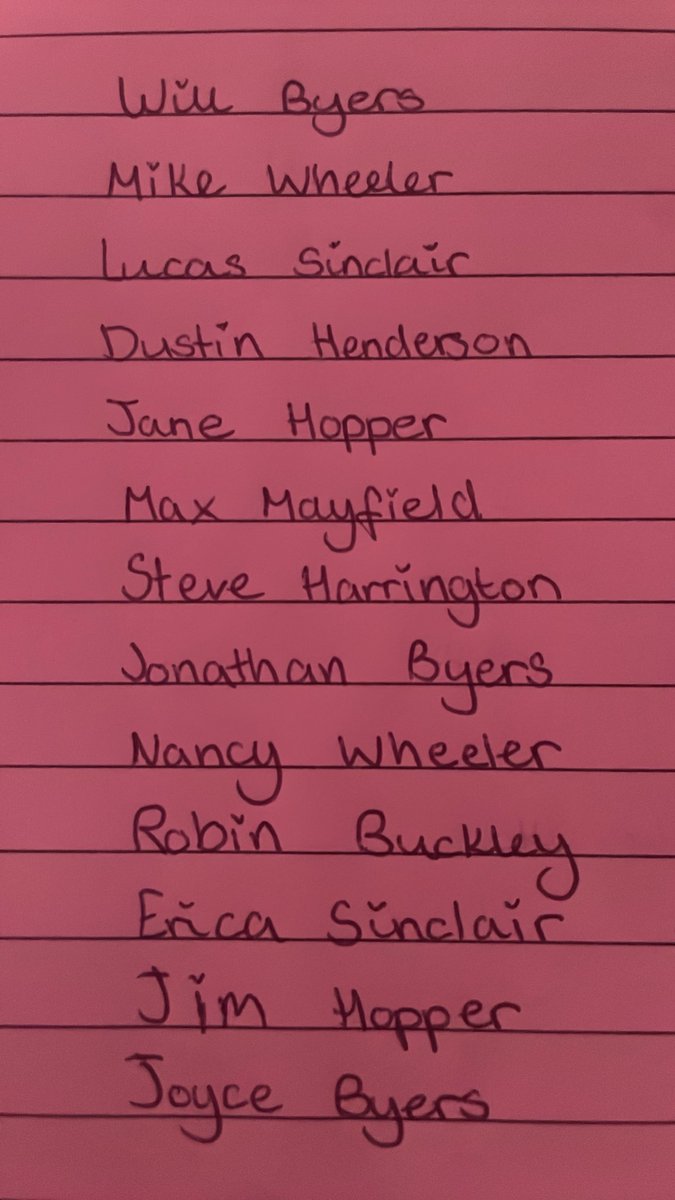 Will Byers
Mike Wheeler
Lucas Sinclair
Dustin Henderson
Jane Hopper
Max Mayfield
Steve Harrington
Jonathan Byers
Nancy Wheeler
Robin Buckley
Erica Sinclair
Jim Hopper
Joyce Byers